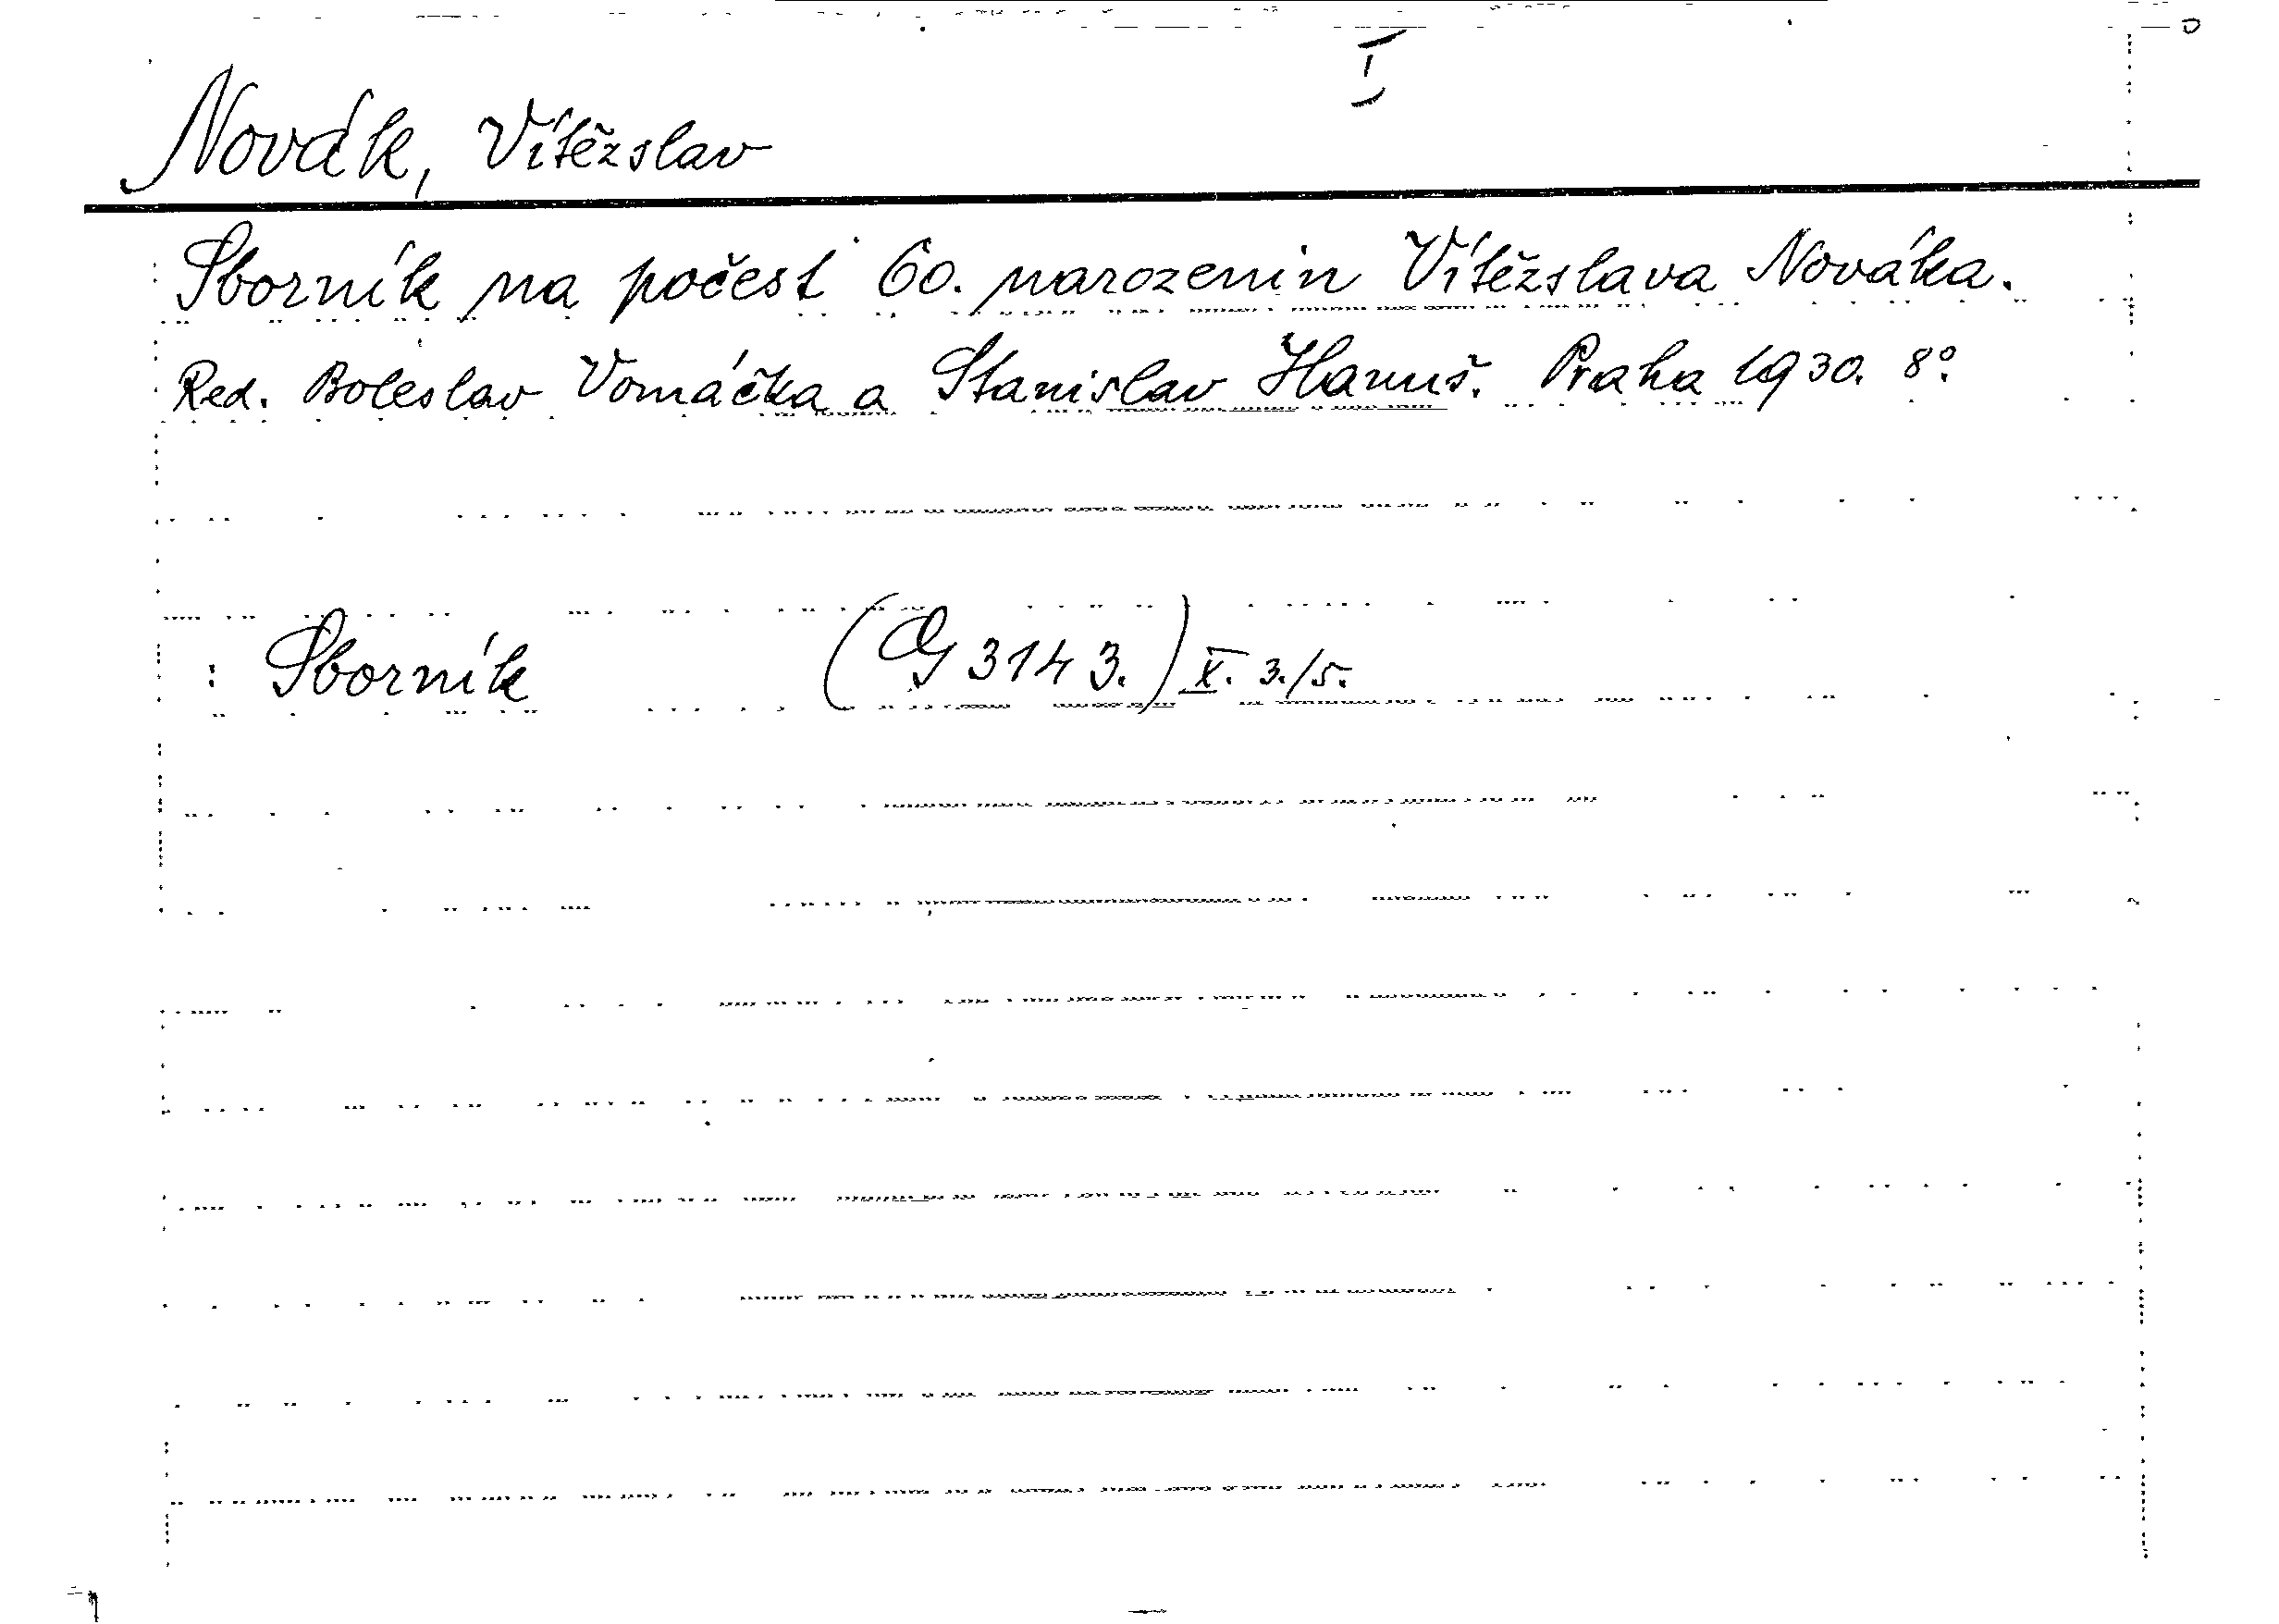 I
Novák, Vítězslav
Sborník na počest 60. narozenin Vítězslava Nováka.
Red. Boleslav Vomáčka a Stanislav Hanuš. Praha 1930. 8°.
: Sborník (G 3143.) X. 3./5.